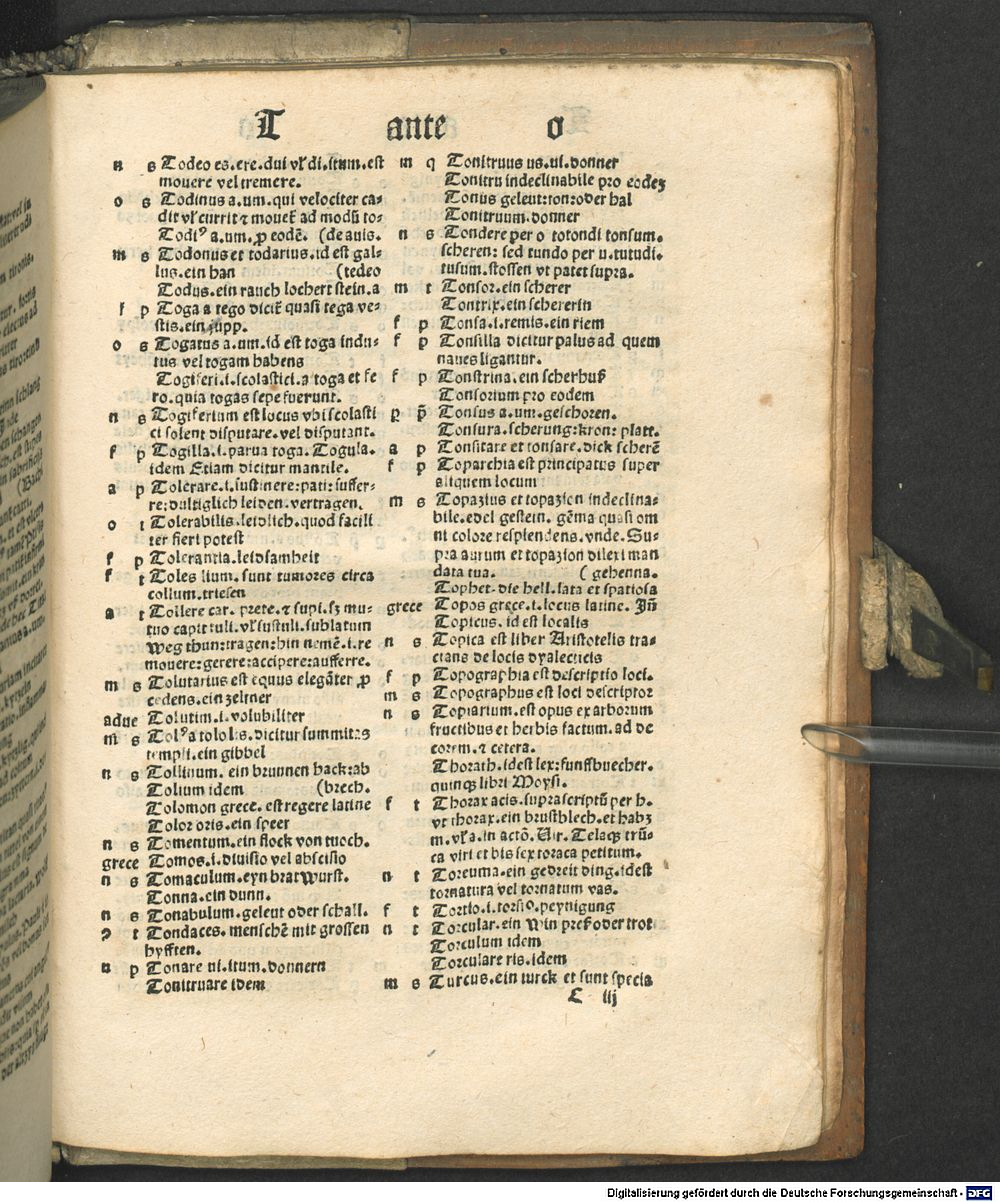 T ante o
n s Todeo es.ere.dui vľ di.itum.est
mouere vel tremere.
o s Todinus a.um.qui velociter ca-
dit vľ currit ⁊ mouet̃ ad modũ to-
Todiꝰ a.um.ꝓ eodẽ. (de auis.
m s Todonus et todarius.id est gal-
lus.ein han (tedeo
Todus.ein rauch lochert stein.a
f p Toga a tego dicit̃ quasi tega ve-
stis.ein jupp.
o s Togatus a.um.id est toga indu-
tus vel togam habens
Togiferi.i.scolastici.a toga et fe
ro.quia togas sepe fuerunt.
n s Togiferium est locus vbi scolasti
ci solent disputare.vel disputant.
f p Togilla.i.parua toga. Togula.
idem Etiam dicitur mantile.
a p Tolerare.i.sustinere:pati:suffer-
re:dultiglich leiden.vertragen.
o t Tolerabilis.leidlich.quod facili
ter fieri potest
f p Tolerantia.leidsamheit
f t Toles lium.sunt tumores circa
collum.triesen
a t Tollere car. prete.⁊ supi.sꝫ mu-
tuo capit tuli.vľ sustuli.sublatum
weg thun:tragen:hin nemẽ.i.re
mouere:gerere:accipere:aufferre.
m s Tolutarius est equus elegãter ꝓ
cedens.ein zeltner
adue Tolutim.i.volubiliter
m s Tolꝰ a tolo lis.dicitur summitas
templi.ein gibbel
n s Tollinum. ein brunnen hack:ab
Tolium idem (brech.
Tolomon grece. est regere latine
Tolor oris.ein speer
n s Tomentum.ein flock von tuoch.
grece Tomos.i.diuisio vel abscisio
n s Tomaculum.eyn brat wurst.
Tonna.ein dunn.
n s Tonabulum.geleut oder schall.
ꝯ t Tondaces. menschẽ mit grossen
hyfften.
n p Tonare ui.itum.donnern
Tonitruare idem
m q Tonitruus us.ui.donner
Tonitru indeclinabile pro eodeꝫ
Tonus geleut:ton:oder hal
Tonitruum.donner
n s Tondere per o totondi tonsum.
scheren: sed tundo per u.tutudi.
tusum.stossen vt patet supra.
m t Tonsor.ein scherer
Tontrix.ein schererin
f p Tonsa.i.remis.ein riem
f p Tonsilla dicitur palus ad quem
naues ligantur.
f p Tonstrina.ein scherhuß
Tonsorium pro eodem
p p̃ Tonsus a.um.geschoren.
Tonsura.scherung:kron: platt.
a p Tonsitare et tonsare.dick scherẽ
f p Toparchia est principatus super
aliquem locum
m s Topazius et topazion indeclina-
bile.edel gestein. gẽma quasi om
ni colore resplendens.vnde.Su-
pra aurum et topazion dilexi man
data tua. (gehenna.
Tophet.die hell.lata et spatiosa
grece Topos grece.i.locus latine. Jñ
Topicus.id est localis
n s Topica est liber Aristotelis tra-
ctans de locis dyalecticis
f p Topographia est descriptio loci.
m s Topographus est loci descriptor
n s Topiarium.est opus ex arborum
fructibus et herbis factum.ad de
corem.⁊ cetera.
Thorath.idest lex:funffbuecher.
quinqꝫ libri Moysi.
f t Thorax acis.supra scriptũ per h.
vt thorax.ein brustblech.et habꝫ
m.vľ a.in actõ. Vir. Telaqꝫ trũ-
ca viri et bis sex toraca petitum.
n t Toreuma.ein gedreit ding.idest
tornatura vel tornatum vas.
f t Tortio.i.torsio.peynigung
n t Torcular.ein win preß oder trot
Torculum idem
Torculare ris.idem
m s Turcus.ein turck et sunt specia
iij
Digitalisierung gefördert durch die Deutsche Forschungsgemeinschaft - DFG